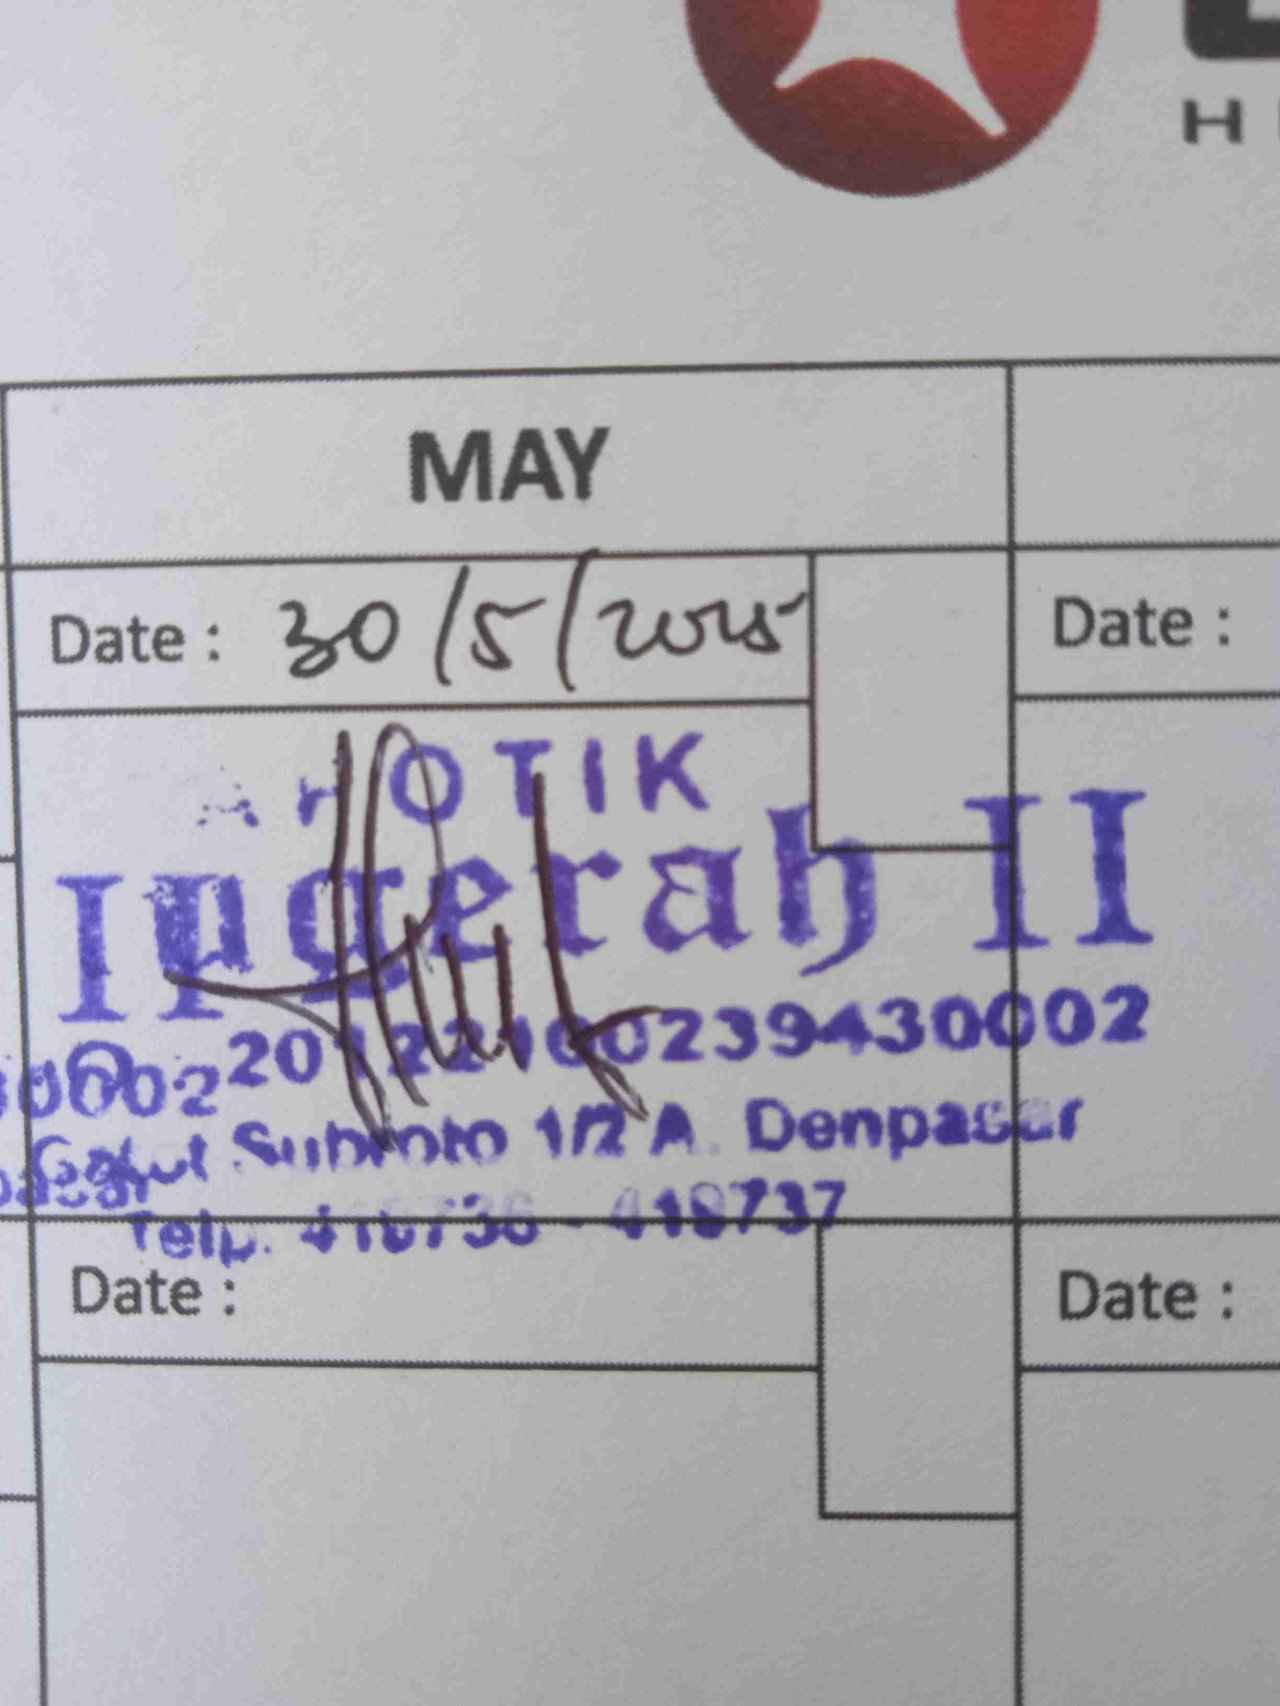 H
MAY
Date : 30/5/2015
Date :
APOTIK
Ingerah II
20122100239430002
0002
Gatut Subroto 1/2 A. Denpasar
pasar
Telp. 418736 - 418737
Date :
Date :